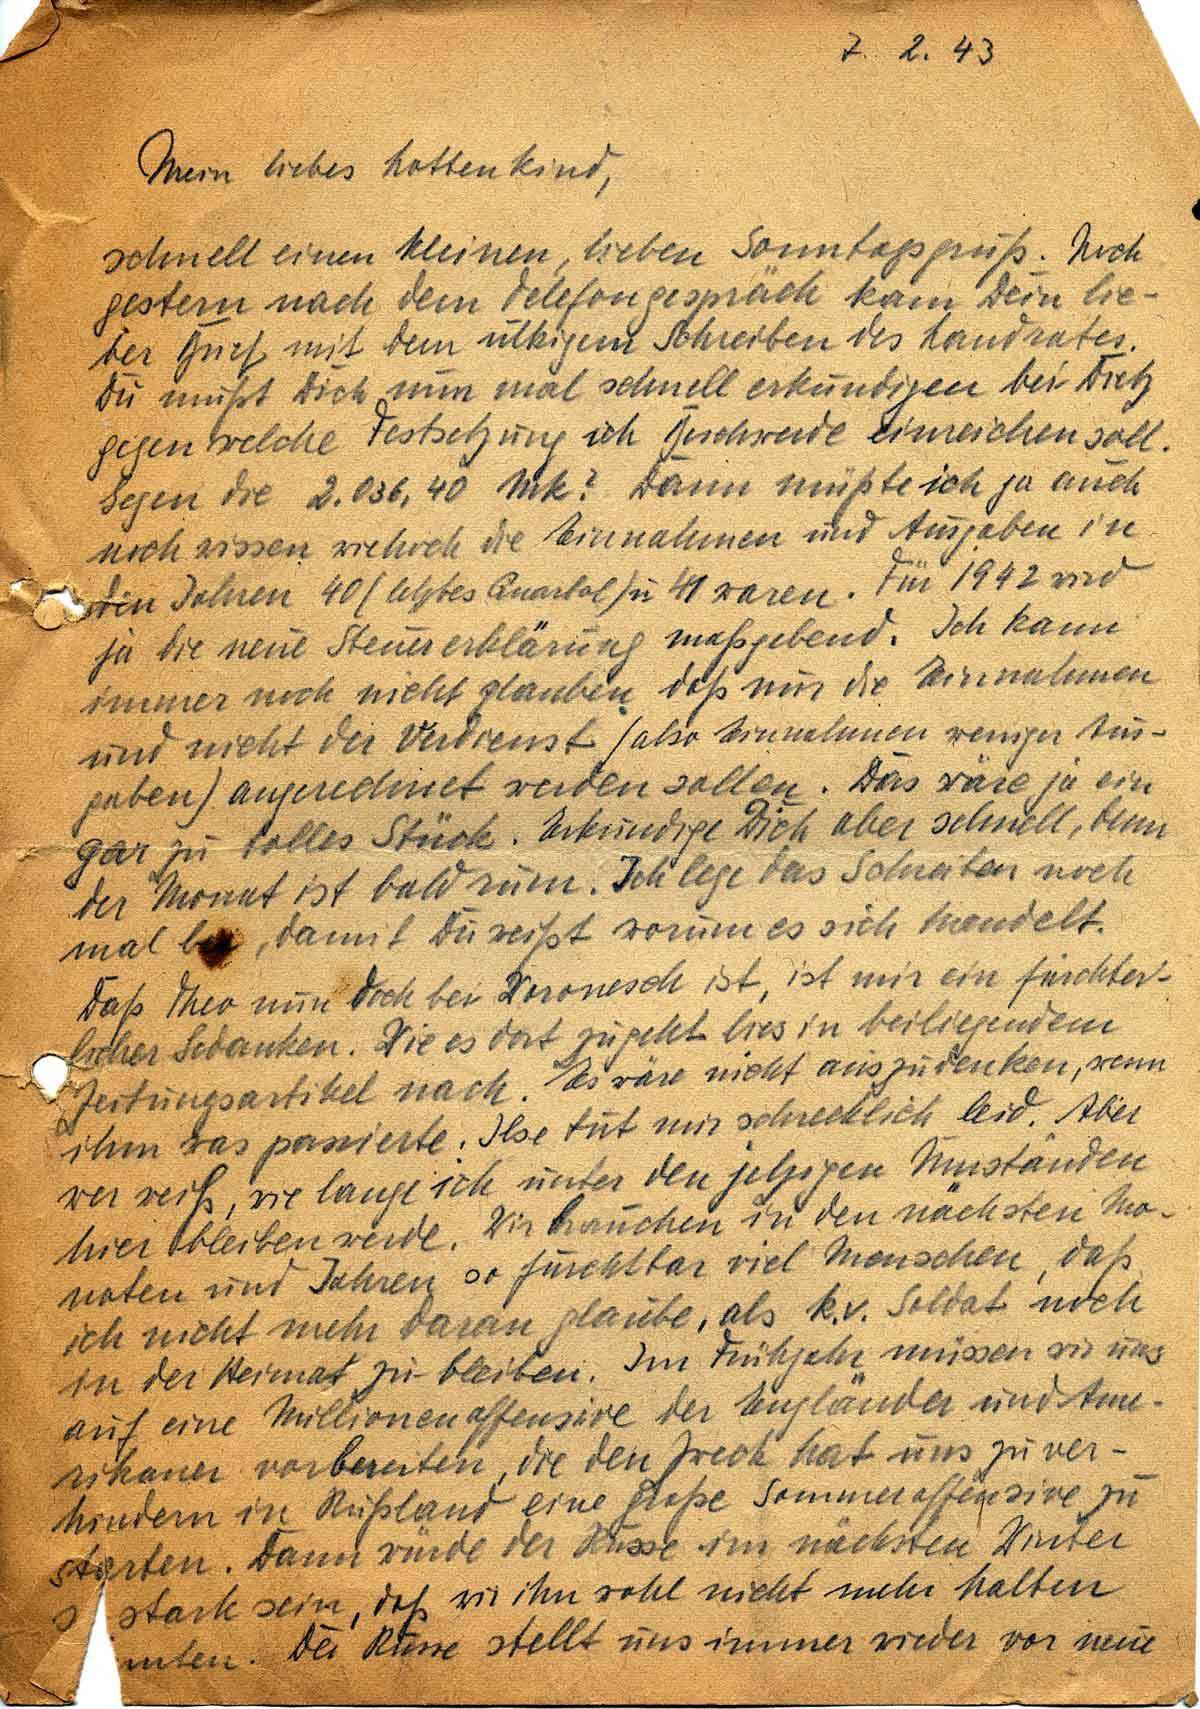 7. 2. 43
Mein liebes Lottenkind,
schnell einen kleinen, lieben Sonntagsgruß. Noch
gestern nach dem Telefongespräch kam Dein lie-
ber Brief mit dem ulkigem Schreiben des Landrates.
Du mußt Dich nun mal schnell erkundigen bei Dietz
gegen welche Festsetzung ich Beschwerde einreichen soll.
Gegen die 2.036,40 Mk? Dann müßte ich ja auch
noch wissen wiehoch die Einnahmen und Ausgaben in
den Jahren 40 (letztes Quartal) u 41 waren. Für 1942 wird
ja die neue Steuererklärung maßgebend. Ich kann
immer noch nicht glauben, daß nur die Einnahmen
und nicht der Verdienst (also Einnahmen weniger Aus-
gaben) angerechnet werden sollen. Das wäre ja ein
gar zu tolles Stück. Erkundige Dich aber schnell, denn
der Monat ist bald rum. Ich lege das Schreiben noch
mal bei, damit Du weißt worum es sich handelt.
Daß Theo nun doch bei Woronesch ist, ist mir ein fürchter-
licher Gedanken. Wie es dort zugeht lies in beiliegendem
Zeitungsartikel nach. Es wäre nicht auszudenken, wenn
ihm was passierte. Ilse tut mir schrecklich leid. Aber
wer weiß, wie lange ich unter den jetzigen Umständen
hier bleiben werde. Wir brauchen in den nächsten Mo-
naten und Jahren so furchtbar viel Menschen, daß
ich nicht mehr daran glaube, als k.v. Soldat noch
in der Heimat zu bleiben. Im Frühjahr müssen wir uns
auf eine Millionenoffensive der Engländer und Ame-
rikaner vorbereiten, die den Zweck hat uns zu ver-
hindern in Rußland eine große Sommeroffensive zu
starten. Dann würde der Russe im nächsten Winter
s stark sein, daß wir ihn wohl nicht mehr halten
nnten. Der Russe stellt uns immer wieder vor neue